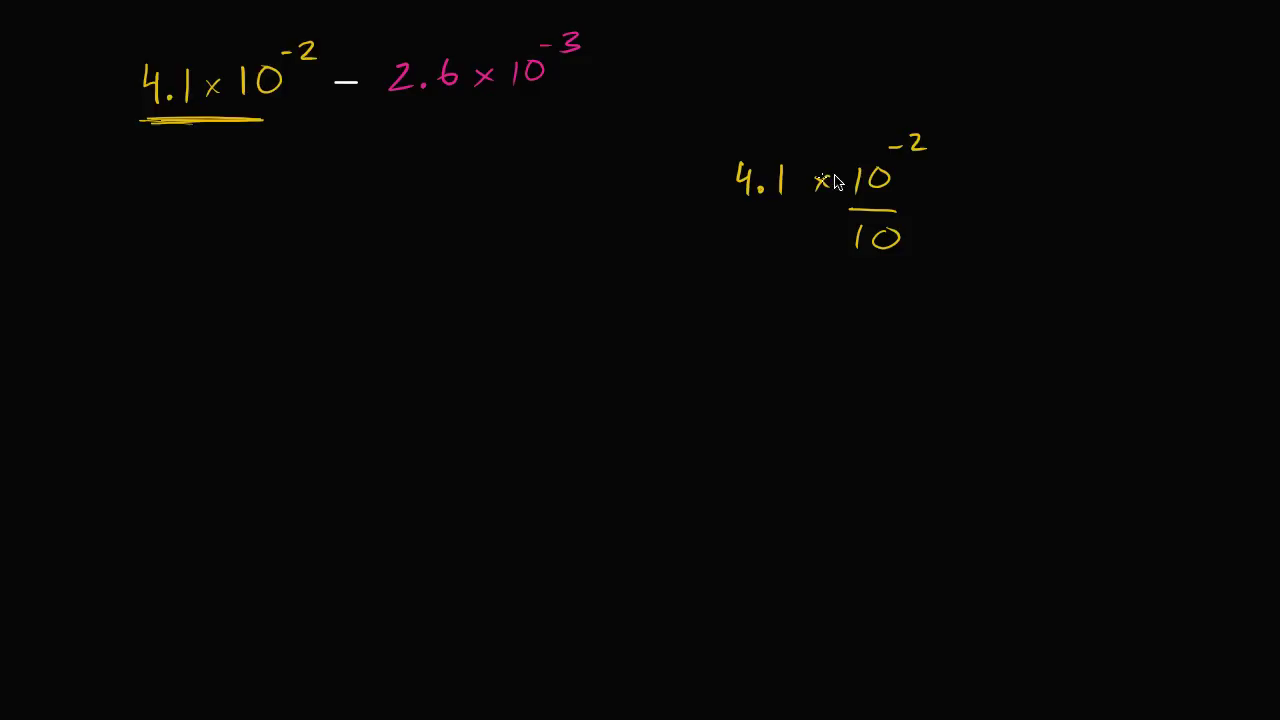 4.1 × 10⁻² − 2.6 × 10⁻³
4.1 × 10⁻²
10